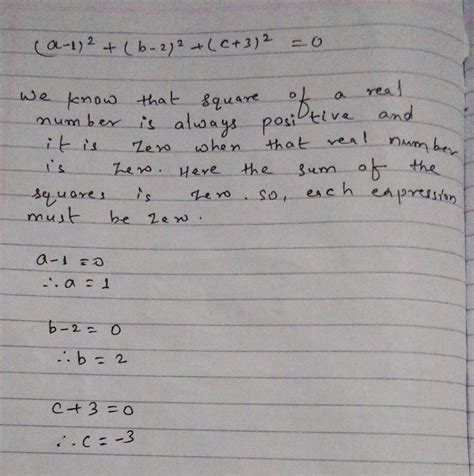 (a-1)² + (b-2)² + (c+3)² = 0
We know that square of a real
number is always positive and
it is zero when that real number
is zero. Here the sum of the
squares is zero. so, each expression
must be zero.
a-1 = 0
∴ a = 1
b-2 = 0
∴ b = 2
c+3 = 0
∴ c = -3